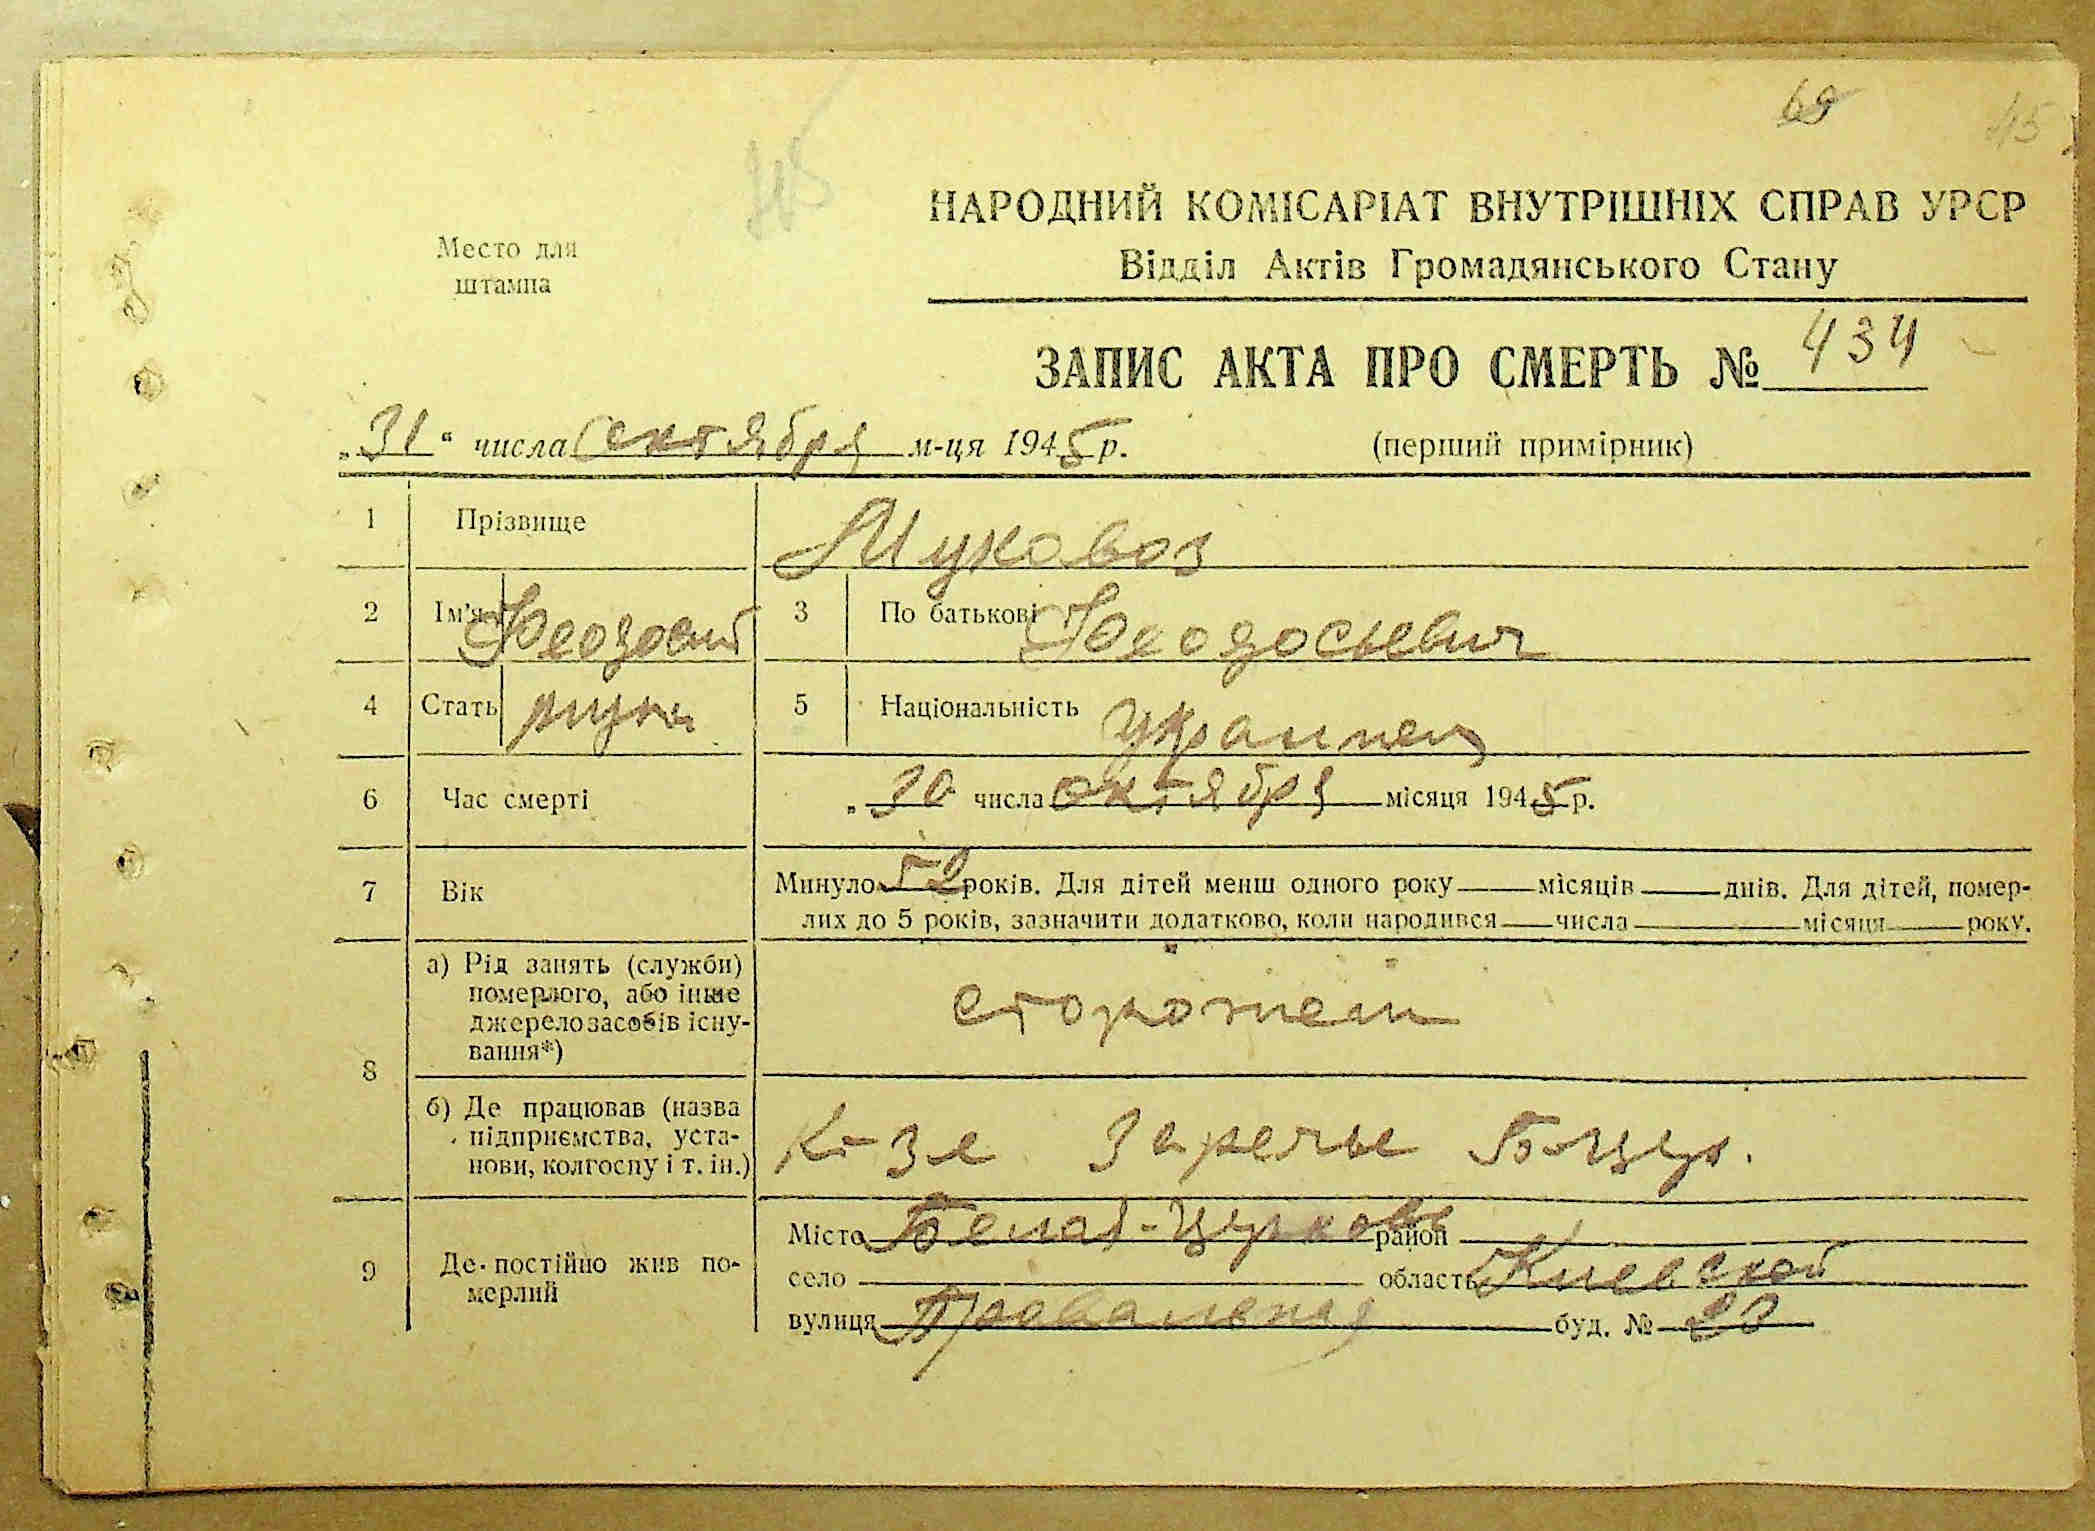 69 45
45
НАРОДНИЙ КОМІСАРІАТ ВНУТРІШНІХ СПРАВ УРСР
Место для штампа
Відділ Актів Громадянського Стану
ЗАПИС АКТА ПРО СМЕРТЬ № 434
„31“ числа октября м-ця 1945 р. (перший примірник)
1 Прізвище Муковоз
2 Ім'я Феодосий 3 По батькові Феодосьевич
4 Стать мужч 5 Національність украинец
6 Час смерті „30 числа октября місяця 1945 р.
7 Вік Минуло 52 років. Для дітей менш одного року місяців днів. Для дітей, помер-
лих до 5 років, зазначити додатково, коли народився числа місяця року.
8 а) Рід занять (служби)
померлого, або інше
джерело засобів існу-
вання*)
сторожем
б) Де працював (назва
підприємства, уста-
нови, колгоспу і т. ін.)
К-з Заречье Б-Церк.
9 Де постійно жив по-
мерлий
Місто Белая-Церковь район
село область Киевской
вулиця Провальная буд. № 20